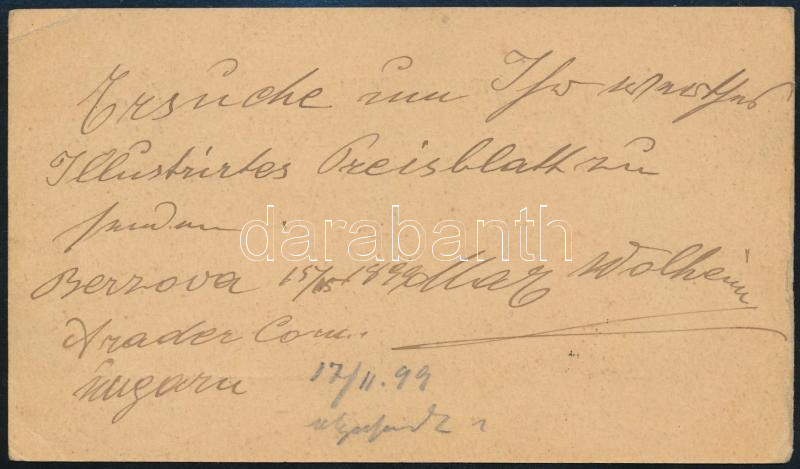 Ersuche um Ihr werthes
Illustrirtes Preisblatt zu
senden
darabanth
Berzova 1899 Max Wolheim
Arader Com.
Ungarn
17/11.99